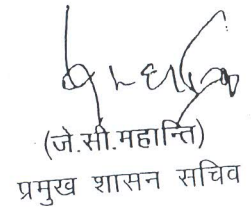 (जे.सी.महान्ति)
प्रमुख शासन सचिव